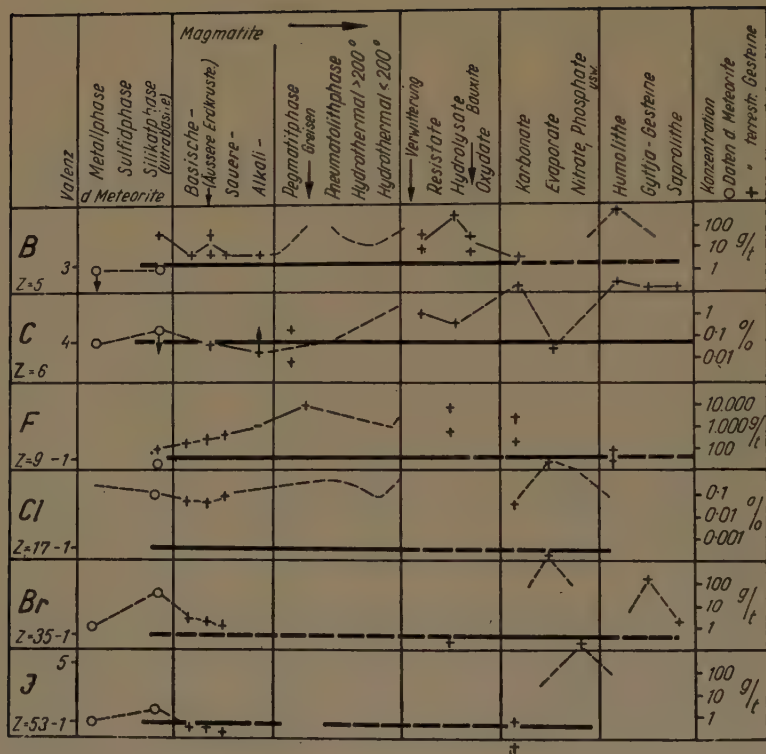 Magmatite
Valenz
Metallphase
Sulfidphase
Silikatphase
(ultrabasite)
d Meteorite
Basische-
(Äussere Erdkruste)
Sauere-
Alkali-
Pegmatitphase
Greisen
Pneumatolithphase
Hydrothermal >200°
Hydrothermal <200°
Verwitterung
Resistate
Hydrolysate
Bauxite
Oxydate
Karbonate
Evaporate
Nitrate, Phosphate usw.
Humolithe
Gyttja-Gesteine
Saprolithe
Konzentration
○ Daten d Meteorite
+ " terrestr. Gesteine
B
3
Z=5
100
10 g/t
1
C
4
Z=6
1
0·1 %
0·01
F
Z=9 -1
10.000
1.000 g/t
100
Cl
Z=17-1
0·1
0·01 %
0·001
Br
Z=35-1
100
10 g/t
1
5
J
Z=53-1
100
10 g/t
1